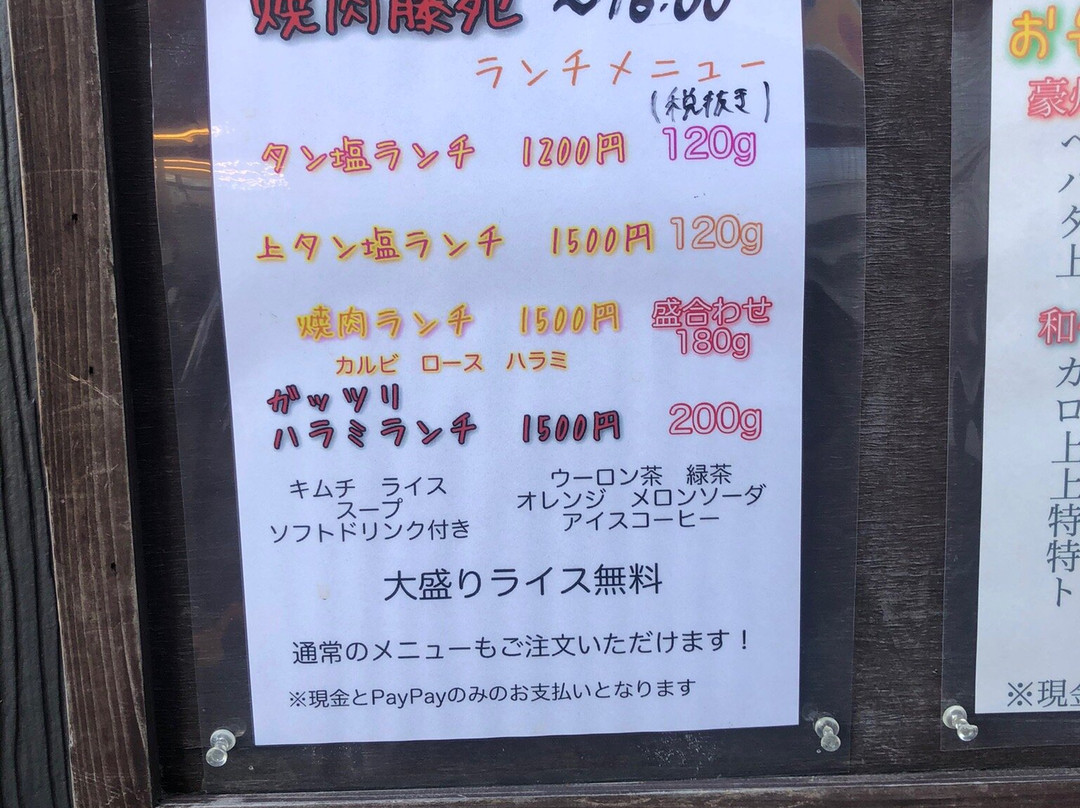 焼肉藤苑 ～16:00
ランチメニュー
(税抜き)
タン塩ランチ 1200円 120g
上タン塩ランチ 1500円 120g
焼肉ランチ 1500円 盛合わせ
180g
カルビ ロース ハラミ
ガッツリ
ハラミランチ 1500円 200g
キムチ ライス
スープ
ソフトドリンク付き
ウーロン茶 緑茶
オレンジ メロンソーダ
アイスコーヒー
大盛りライス無料
通常のメニューもご注文いただけます！
※現金とPayPayのみのお支払いとなります
お
豪
タ
上
和
カ
ロ
上
上
特
特
ト
※現金